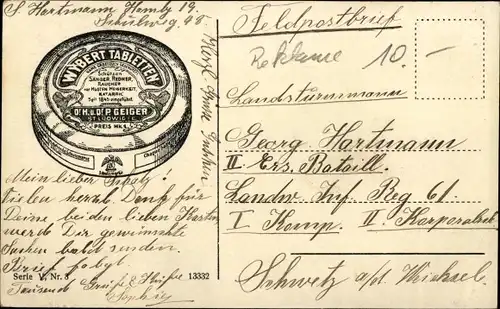 S. Hartmann Hamby 19.
Schulweg 48
WYBERT TABLETTEN
Schützen
SÄNGER, REDNER,
RAUCHER
vor HUSTEN HEISERKEIT,
KATARRH.
Seit 1846 eingeführt
Dr. H. u. Dr. P. GEIGER
ST LUDWIG i. E.
PREIS MK. 1.
Herzl. Grüße
Mein lieber Schatz!
Vielen herzl. Dank für
Deine beiden lieben Karten
werde Dir gewünschte
Sachen bald senden.
Brief folgt.
Tausend Grüße & Küße
Sophie
Serie V, Nr. 3 13332
Feldpostbrief
Reklame 10.-
Landsturmmann
Georg Hartmann
II Ers. Bataill.
Landw. Inf. Reg 61
I Komp. II. Korporalsch.
Schwetz a/d. Weichsel.